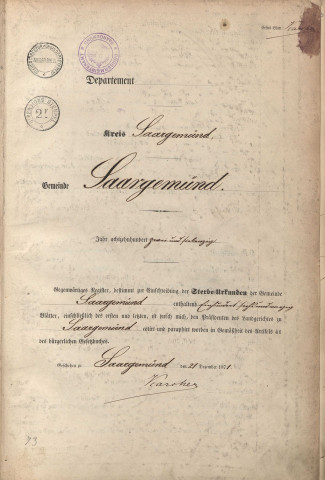 Erstes Blatt. Karcher
Departement
Kreis Saargemünd.
Gemeinde Saargemünd.
Jahr achtzehnhundert zwei und siebenzig
Gegenwärtiges Register, bestimmt zur Einschreibung der Sterbe-Urkunden der Gemeinde
Saargemünd enthaltend Einhundert
Blätter, einschließlich des ersten und letzten, ist durch mich, den Präsidenten des Landgerichtes zu
Saargemünd, cotirt und paraphirt worden in Gemäßheit des Artikels 41
des bürgerlichen Gesetzbuches.
Geschehen zu Saargemünd den 21 Dezember 1871.
Karcher
93